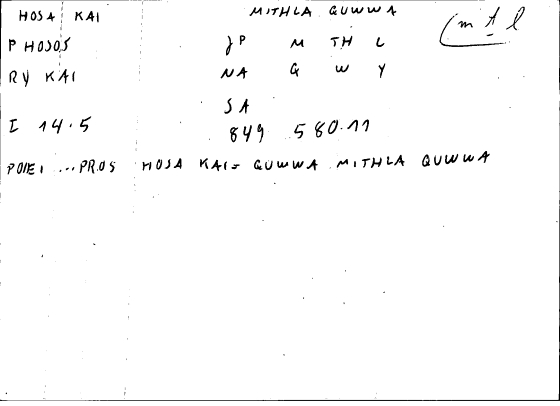 HOSA KAI MITHLA QUWWA (m t l
P HOSOS JP M TH L
RY KAI NA Q W Y
SA
I 14.5 849 580.11
POIEI ...PROS HOSA KAI= QUWWA MITHLA QUWWA